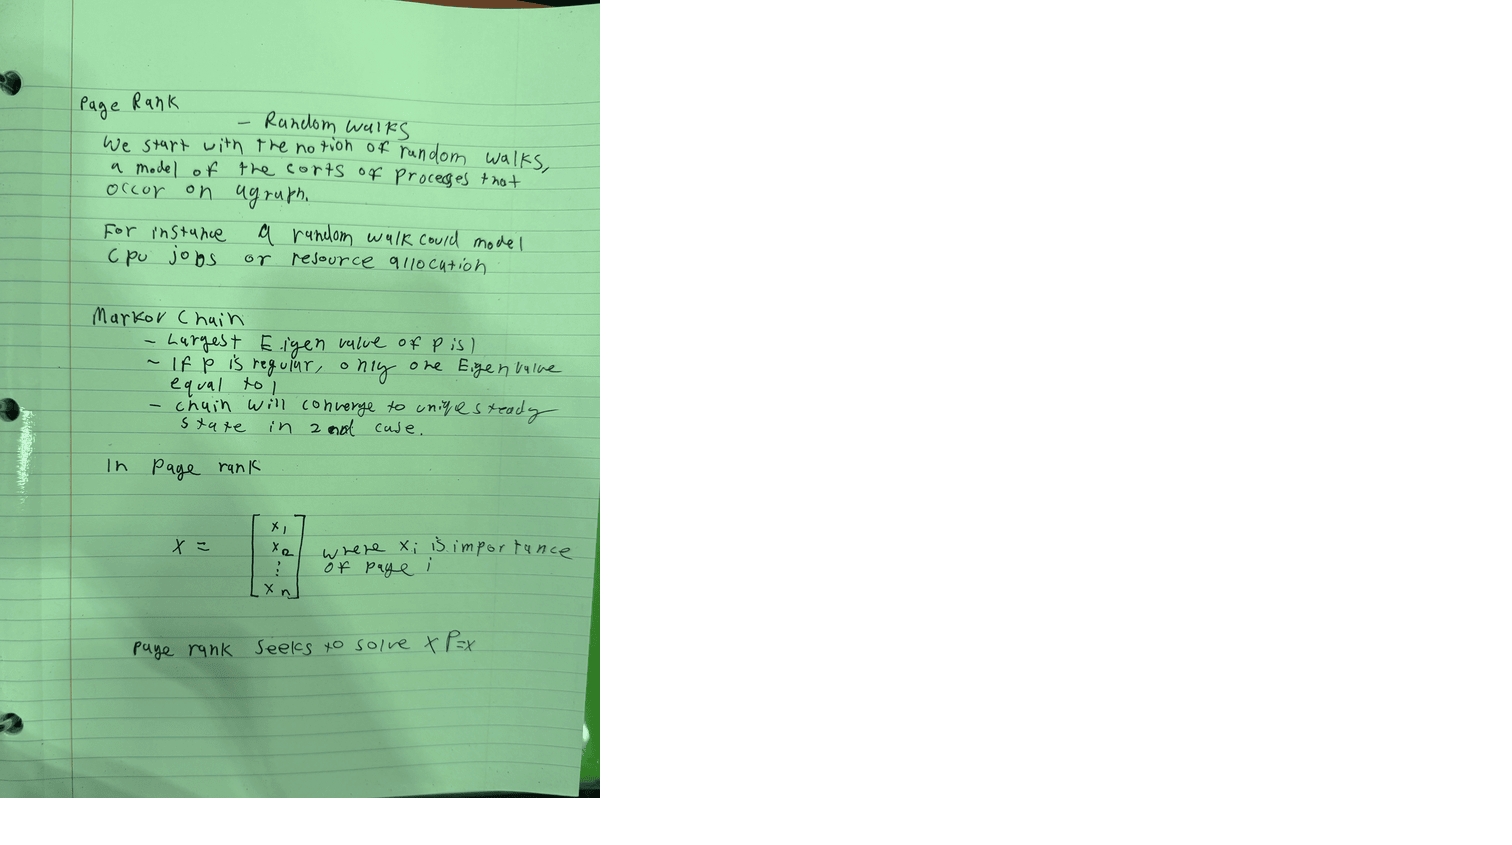 Page Rank
- Random walks
We start with the notion of random walks,
a model of the sorts of processes that
occur on a graph.
For instance a random walk could model
Cpu jobs or resource allocation
Markov Chain
- Largest Eigen value of P is 1
- If P is regular, only one Eigen value
equal to 1
- chain will converge to uniqe steady
state in 2nd case.
In Page rank
X = [x1 x2 ⋮ xn] where xi is importance
of page i
page rank seeks to solve xP=x